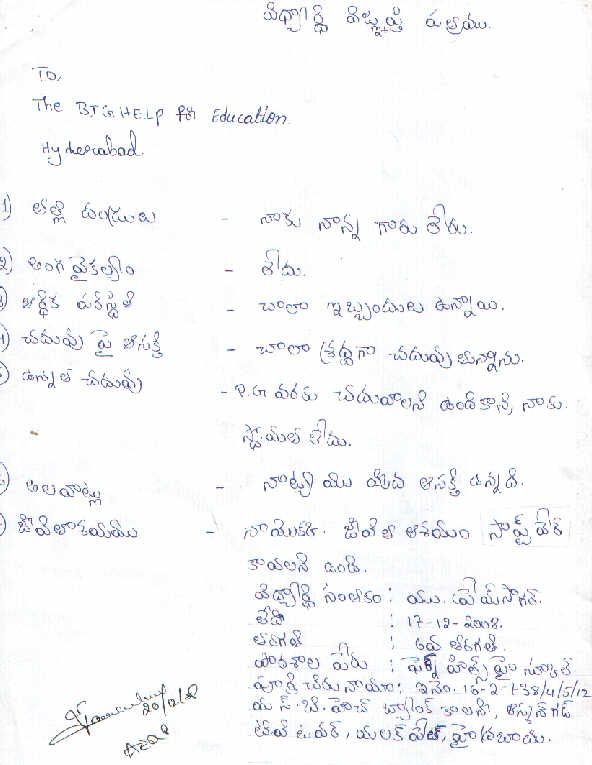 విద్యార్థి విజ్ఞప్తి పత్రము.
To,
The B.T.G. HELP for Education.
Hyderabad.
1) తల్లి దండ్రులు - నాకు నాన్న గారు లేరు.
2) అంగ వైకల్యం - లేదు.
3) ఆర్థిక పరిస్థితి - చాలా ఇబ్బందులు ఉన్నాయి.
4) చదువు పై ఆసక్తి - చాలా శ్రద్ధగా చదువుతున్నాను.
5) ఉన్నత చదువు - P.G వరకు చదవాలని ఉంది కాని నాకు
స్తోమత లేదు.
6) అలవాట్లు - నాట్యము యెడ ఆసక్తి ఉన్నది.
7) జీవితాశయము - నా యొక్క జీవిత ఆశయం సాఫ్ట్ వేర్
కావాలని ఉంది.
విద్యార్థి సంతకం : యు. సాగర్.
తేది : 17-12-2008.
తరగతి : 6వ తరగతి.
పాఠశాల పేరు : హిల్స్ హై స్కూల్
పూర్తి చిరునామా : ఇ.నం. 16-2-138/4/5/12
యస్.బి.హెచ్ బ్యాంక్ కాలని, ఆస్మాన్‌గడ్
టి.వి టవర్, మలక్ పేట్, హైద్రాబాదు.
20/12/08